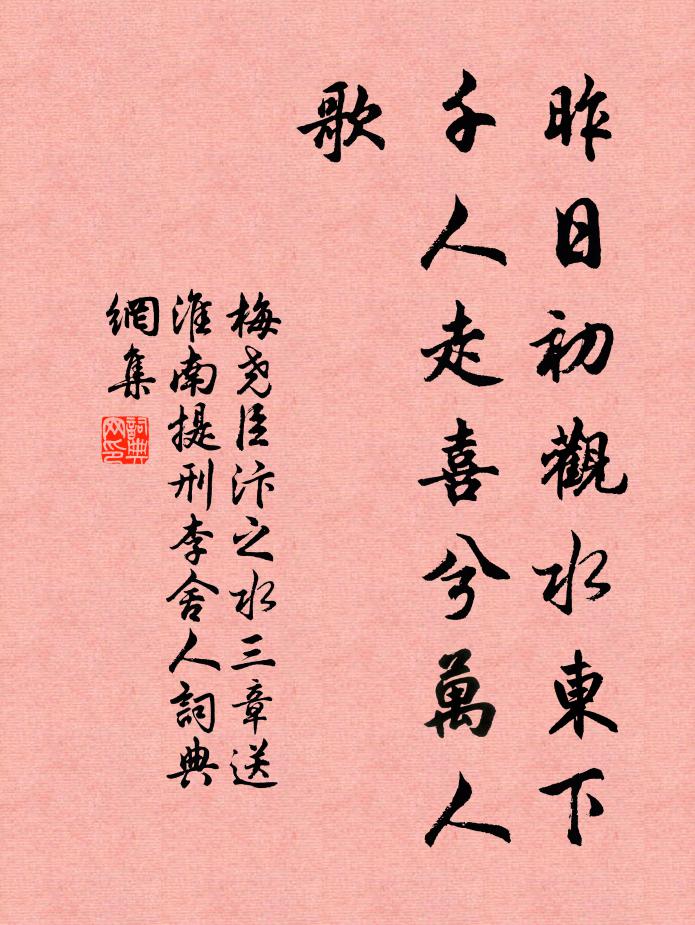 昨日初觀水東下
千人走喜兮萬人
歌
梅堯臣汴之水三章送
淮南提刑李舍人詞典
網集
詞典
網印